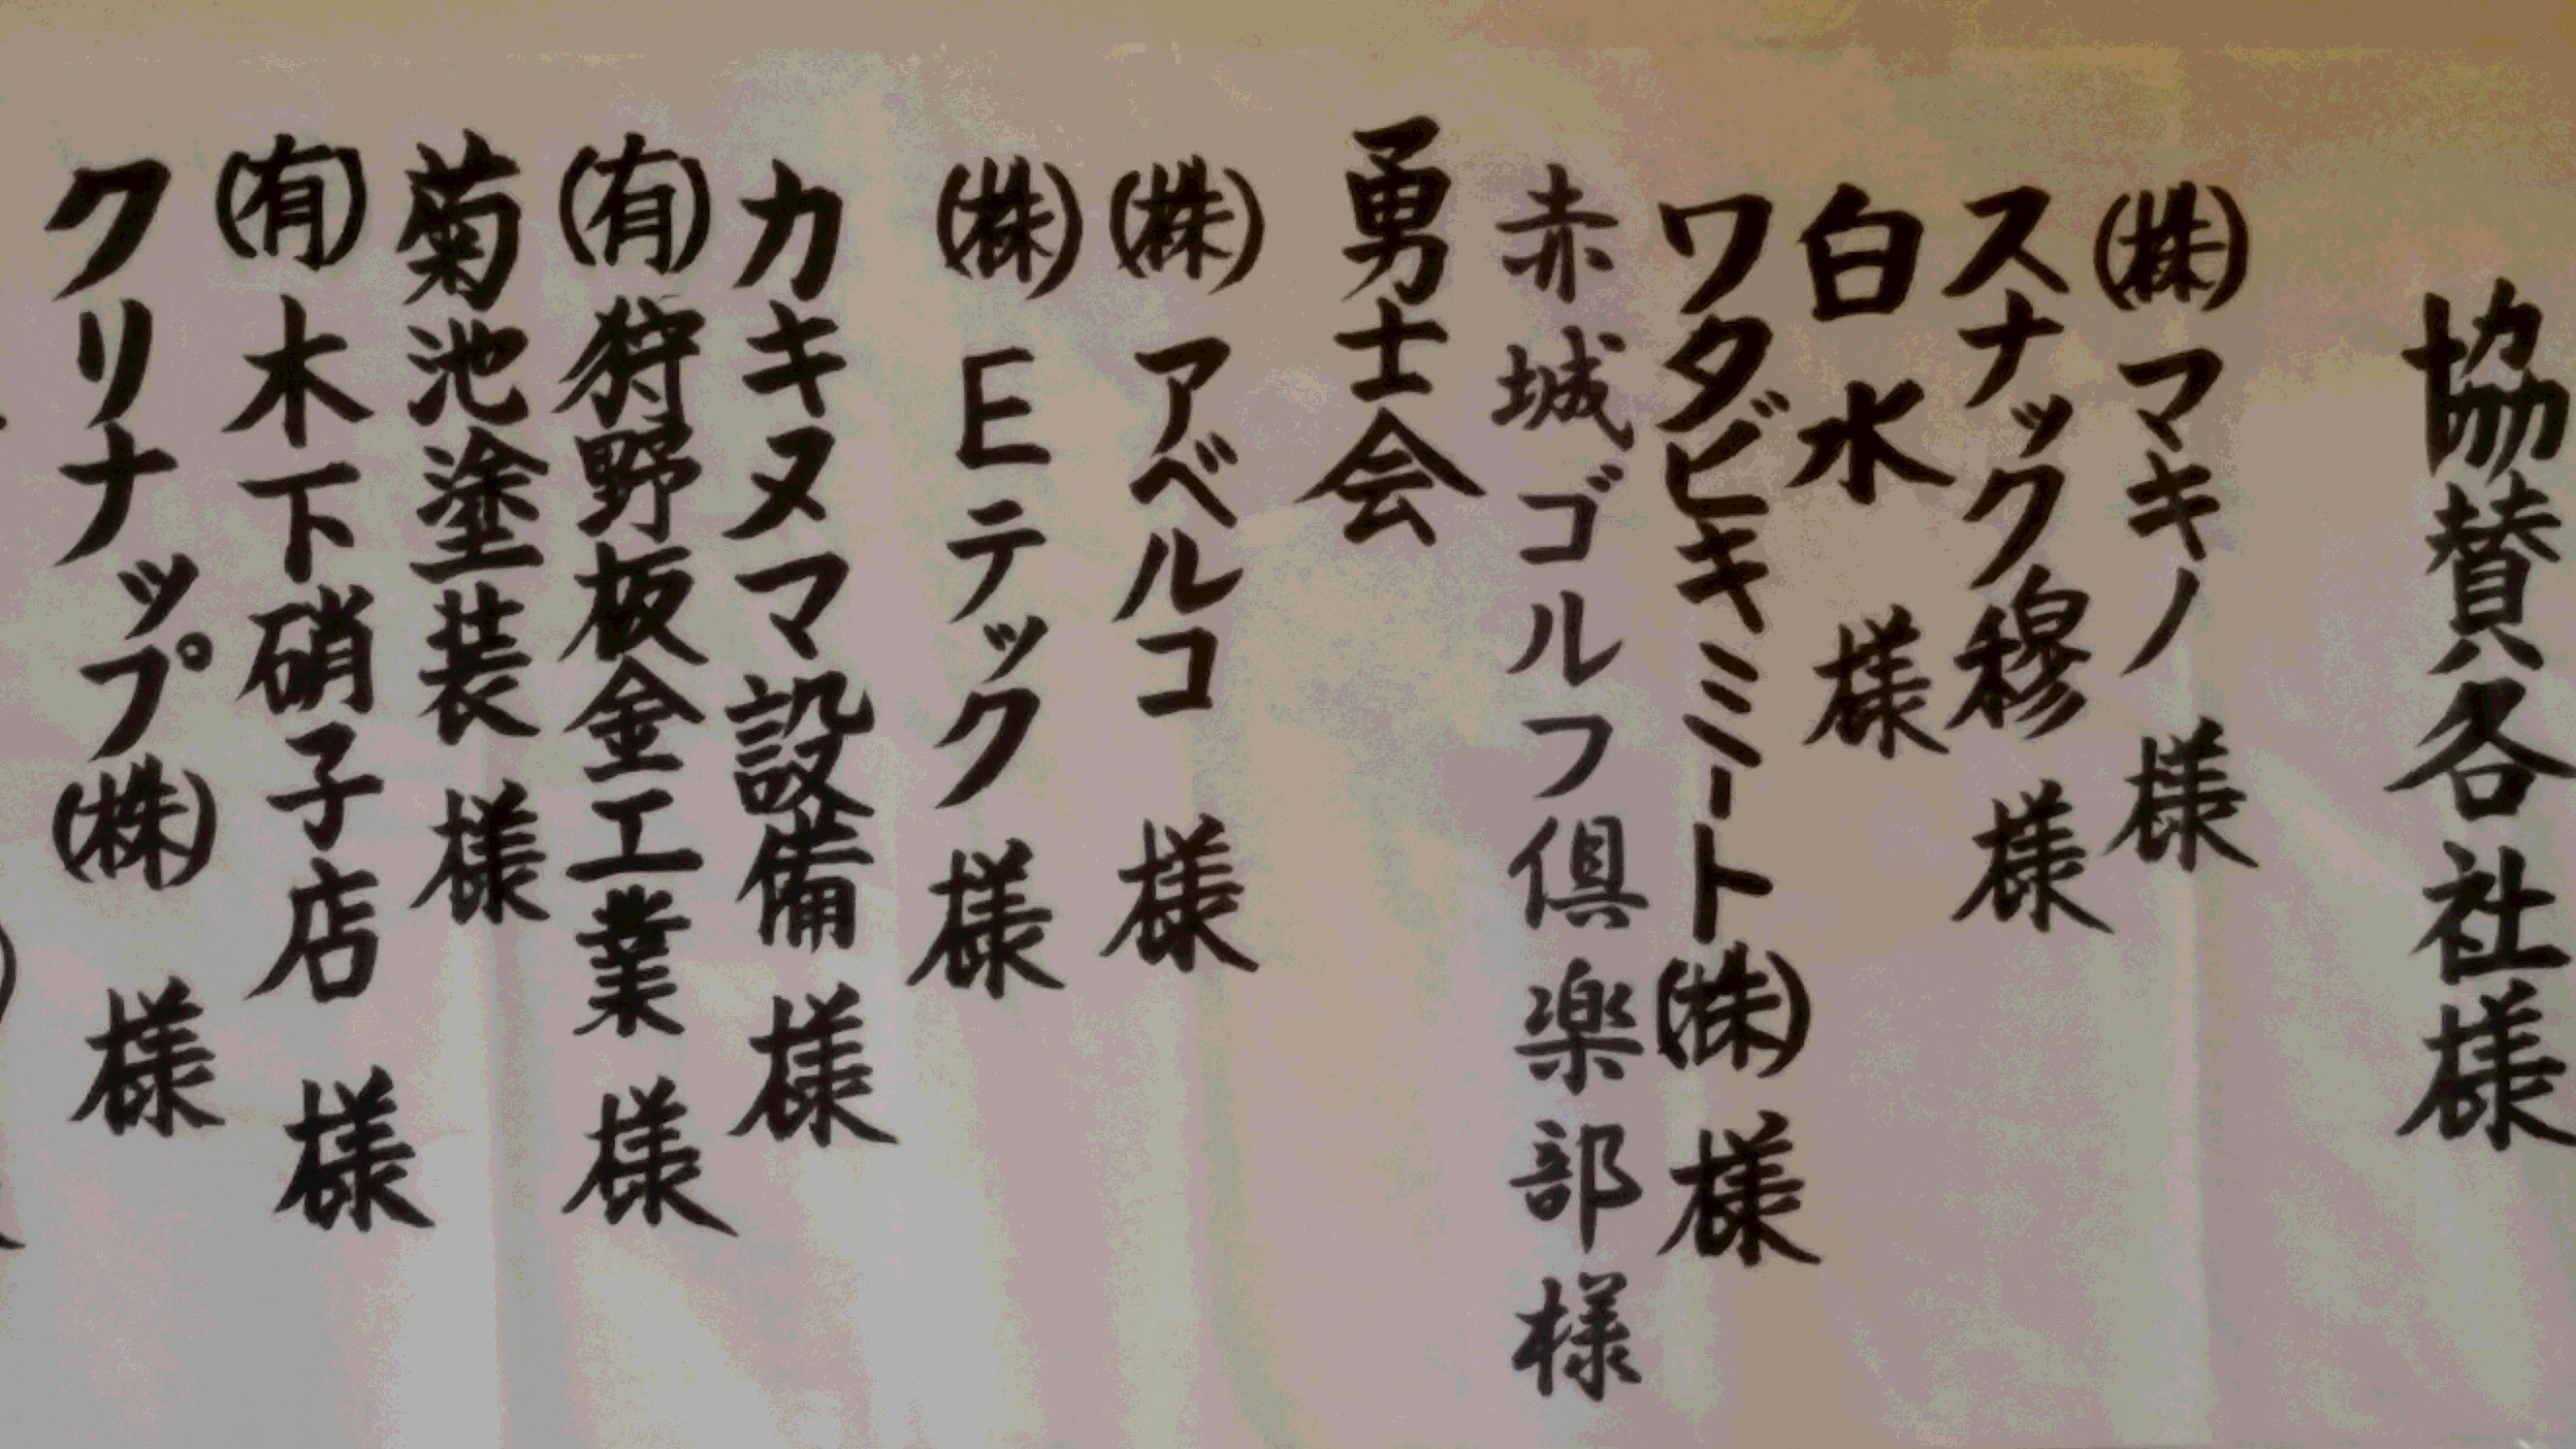 協賛各社様
㈱マキノ 様
スナック穆 様
白水 様
ワタビキミート㈱ 様
赤城ゴルフ倶楽部様
勇士会
㈱アベルコ 様
㈱Eテック 様
カキヌマ設備 様
㈲狩野板金工業 様
菊池塗装 様
㈲木下硝子店 様
クリナップ㈱ 様